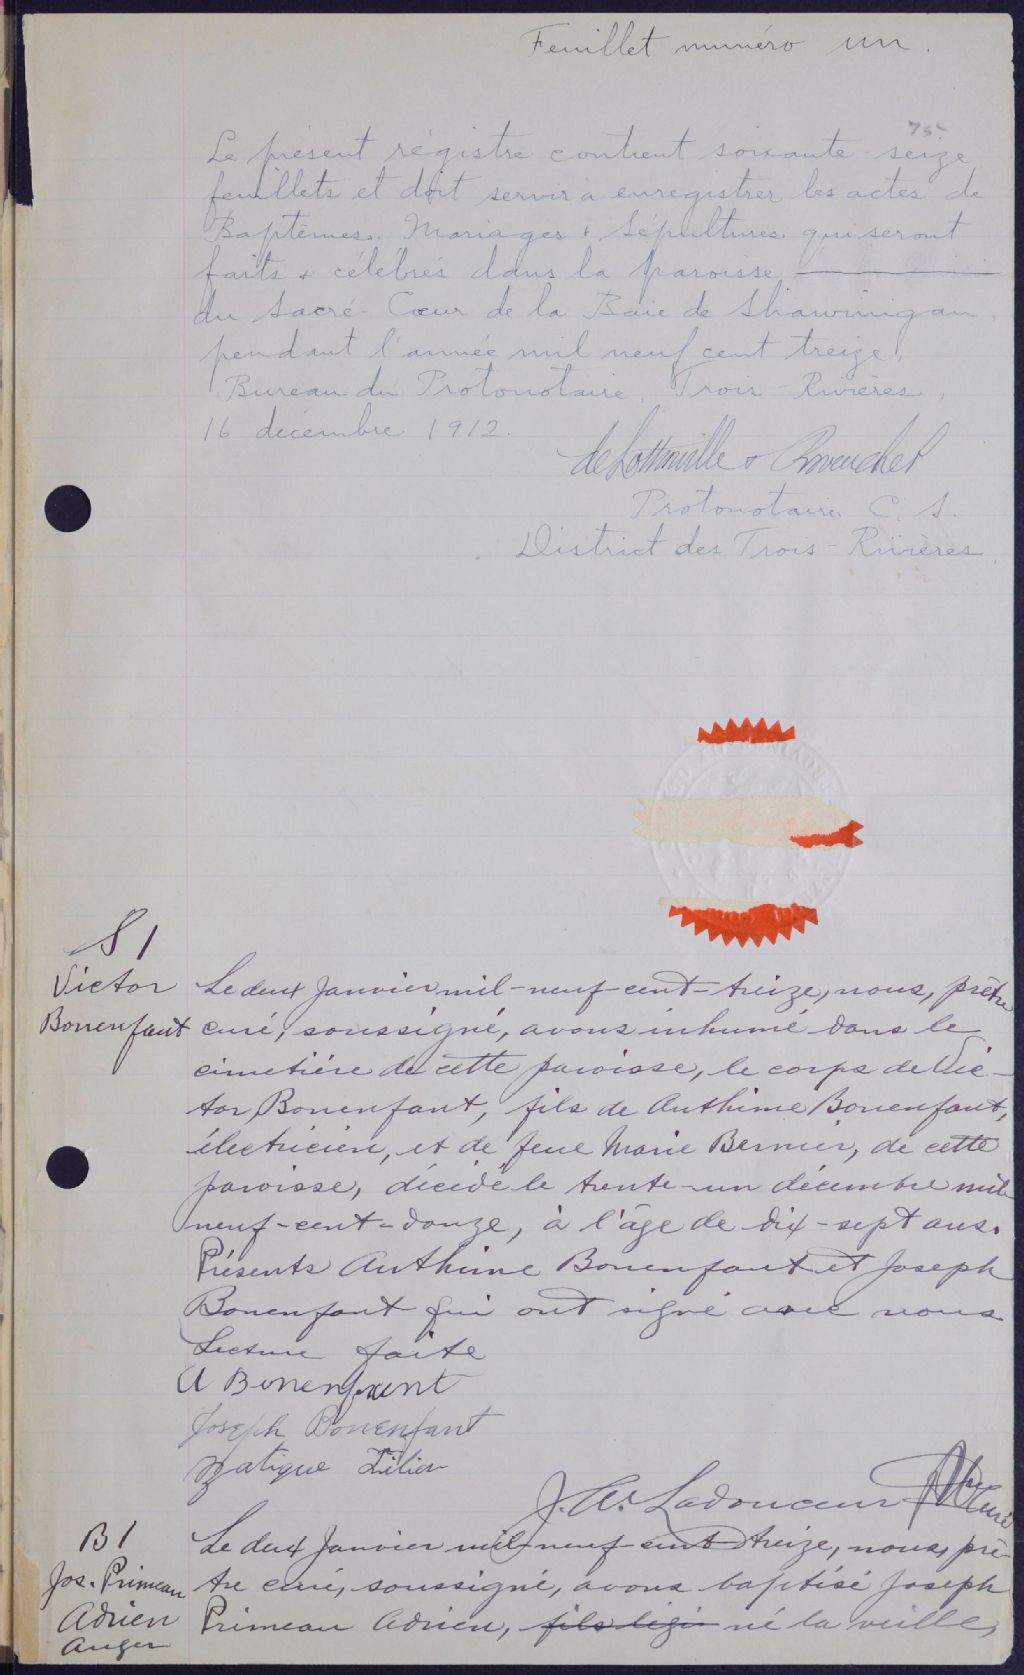 Feuillet numéro un.
75
Le présent régistre contient soixante-seize
feuillets et doit servir à enregistrer les actes de
Baptêmes, Mariages & Sépultures qui seront
faits & célébrés dans la paroisse
du Sacré-Cœur de la Baie de Shawinigan,
pendant l'année mil neuf cent treize.
Bureau du Protonotaire, Trois-Rivières,
16 décembre 1912.
deLottinville &
Protonotaire C. S.
District des Trois-Rivières
S 1
Victor
Bonenfant
Le deux Janvier mil-neuf-cent-treize, nous, prêtre
curé, soussigné, avons inhumé dans le
cimetière de cette paroisse, le corps de Vic-
tor Bonenfant, fils de Anthime Bonenfant,
électricien, et de feue Marie Bernier, de cette
paroisse, décédé le trente-un décembre mil
neuf-cent-douze, à l'âge de dix-sept ans.
Présents Anthime Bonenfant et Joseph
Bonenfant qui ont signé avec nous
Lecture faite
A Bonenfant
Joseph Bonenfant
J. A. Ladouceur Ptre Curé
B 1
Jos. Primeau
Adrien
Auger
Le deux Janvier mil-neuf-cent-treize, nous, prê-
tre curé, soussigné, avons baptisé Joseph
Primeau Adrien, fils légi né la veille,